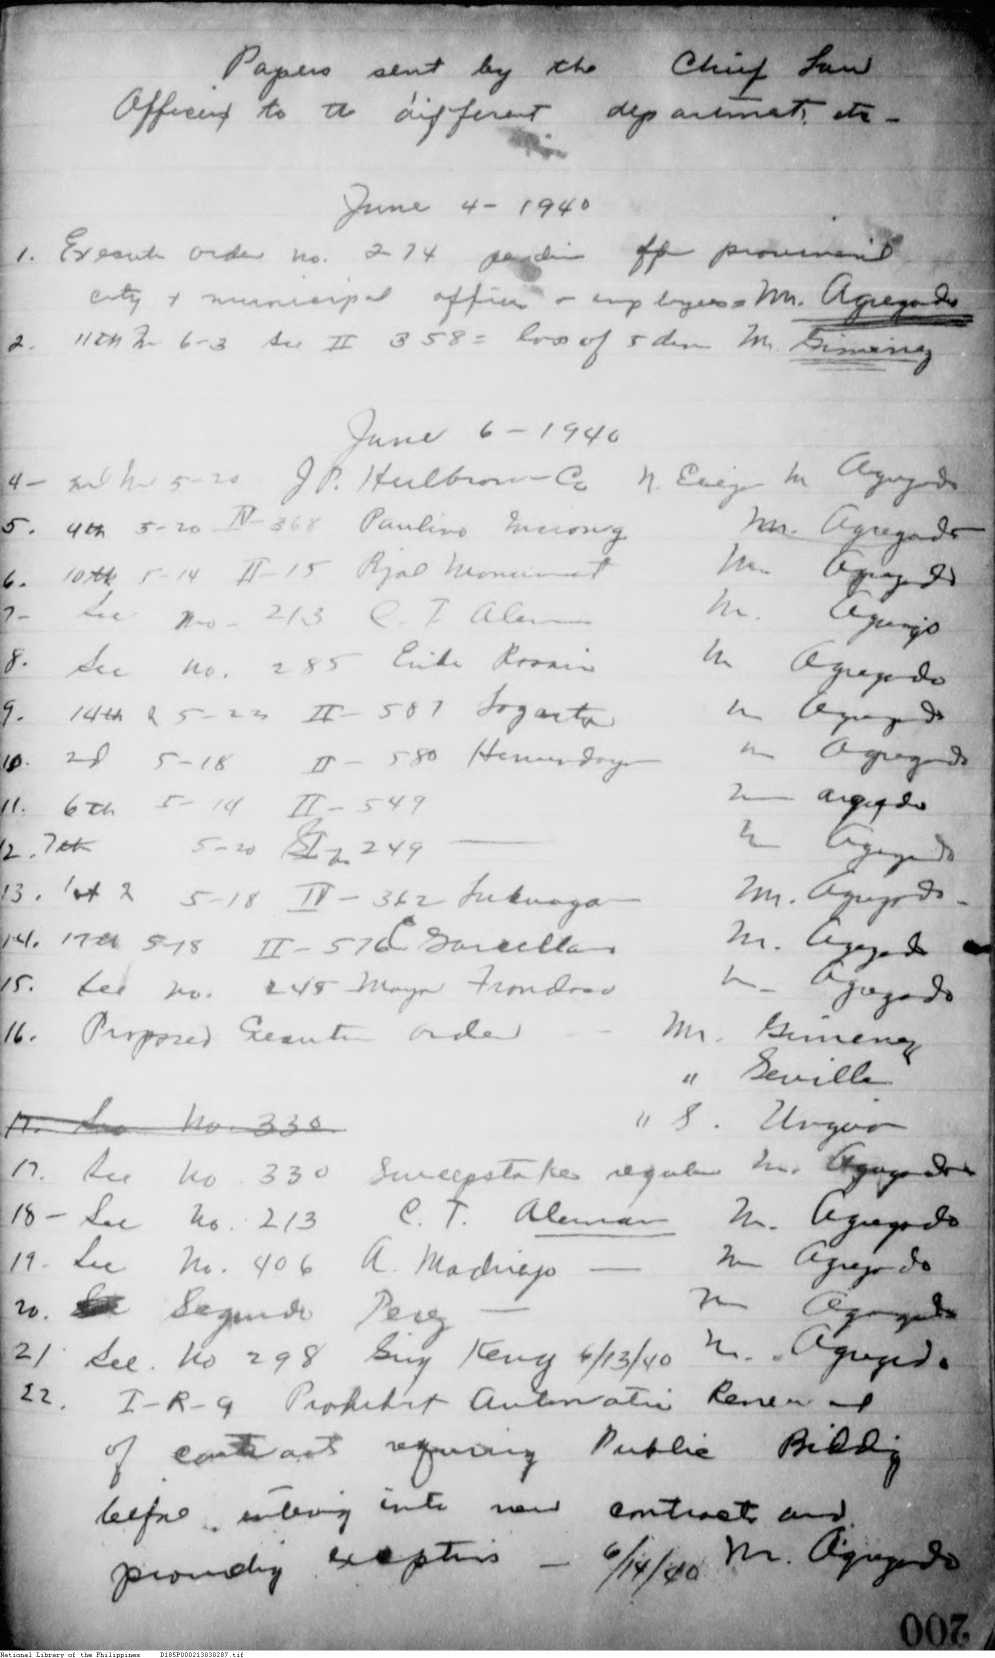 Papers sent by the Chief Law
Officer to the different departments, etc -
June 4 - 1940
1. Execute order no. 274 provincial
city & municipal officers employees = Mr. Agregado
2. 11th 6-3 See II 358 = loss of Mr. Gimenez
June 6 - 1940
4 - 5-20 J P. Heilbronn Co N. Ecija M Agregado
5. 4th 5-20 IV-368 Paulino Mr. Agregado
6. 10th 5-14 II-15 Rizal Monument M. Agregado
7- See no - 213 C. T. Aleman M. Agregado
8. See no. 285 M Agregado
9. 14th 2 5-22 II - 587 M Agregado
10. 2d 5-18 II - 580 M Agregado
11. 6th 5-14 II - 549 M Agregado
12. 7th 5-20 249 — M Agregado
13. 1st 2 5-18 IV - 362 Mr. Agregado -
14. 17th 5-18 II - 576 M. Agregado
15. See no. 245 Mayor Frondoso M Agregado
16. Proposed Executive order - Mr. Gimenez
" Sevilla
17. See No. 330. " S. Unson
17. See No 330 Sweepstakes M. Agregado
18 - See No. 213 C. T. Aleman M. Agregado
19. See No. 406 A. Madrigo — M Agregado
20. Segundo Perez — M Agregado
21 See. No 298 Keng 6/13/40 M. Agregado
22. I-R-9 Prohibit Automatic Renewal
of contracts requiring Public Bidding
before entering into new contracts and
providing exceptions - 6/14/40 Mr. Agregado
200
National Library of the Philippines D185P000213038287.tif